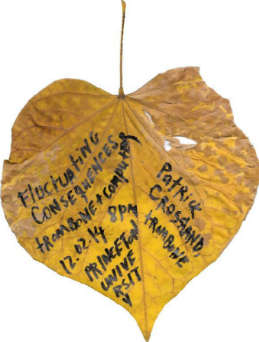 Fluctuating
CONSEQUENCES
trombone+computer
12.02.14 8PM
PRINCETON
UNIVE
RSIT
Y
Patrick
CROSSLAND
trombone